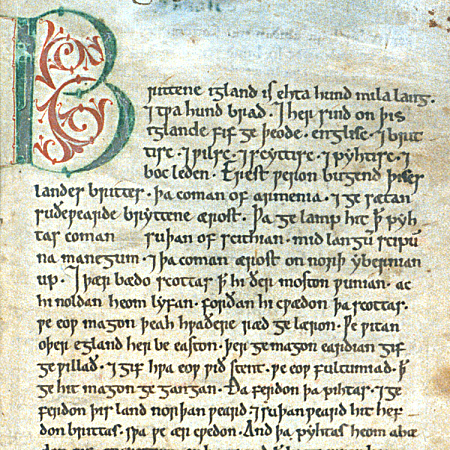 Brittene igland is ehta hund mila lang.
⁊ twa hund brad. ⁊ her sind on þis
iglande fif ge þeode. englisc. ⁊ brit
tisc. ⁊ wilsc. ⁊ scyttisc. ⁊ pyhtisc. ⁊
boc leden. Erest weron bugend þises
landes brittes. þa coman of armenia. ⁊ ge sætan
suðewearde bryttene ærost. Þa ge lamp hit ꝥ pyh
tas coman suþan of scithian. mid langū scipū
na manegum. ⁊ þa coman ærost on norþ ybernian
up. ⁊ þær bædo scottas ꝥ hi ðer moston wunian. ac
hi noldan heom lyfan. forðan hi cwædon þa scottas.
we eow magon þeah hwaðere ræd ge læron. We witan
oþer egland her be easton. þer ge magon eardian gif
ge willað. ⁊ gif hwa eow wið stent. we eow fultumiað. ꝥ
ge hit magon ge gangan. Ða ferdon þa pihtas. ⁊ ge
ferdon þis land norþan weard. ⁊ suþan weard hit hef
don brittas. swa we ær cwedon. And þa pyhtas heom abæ